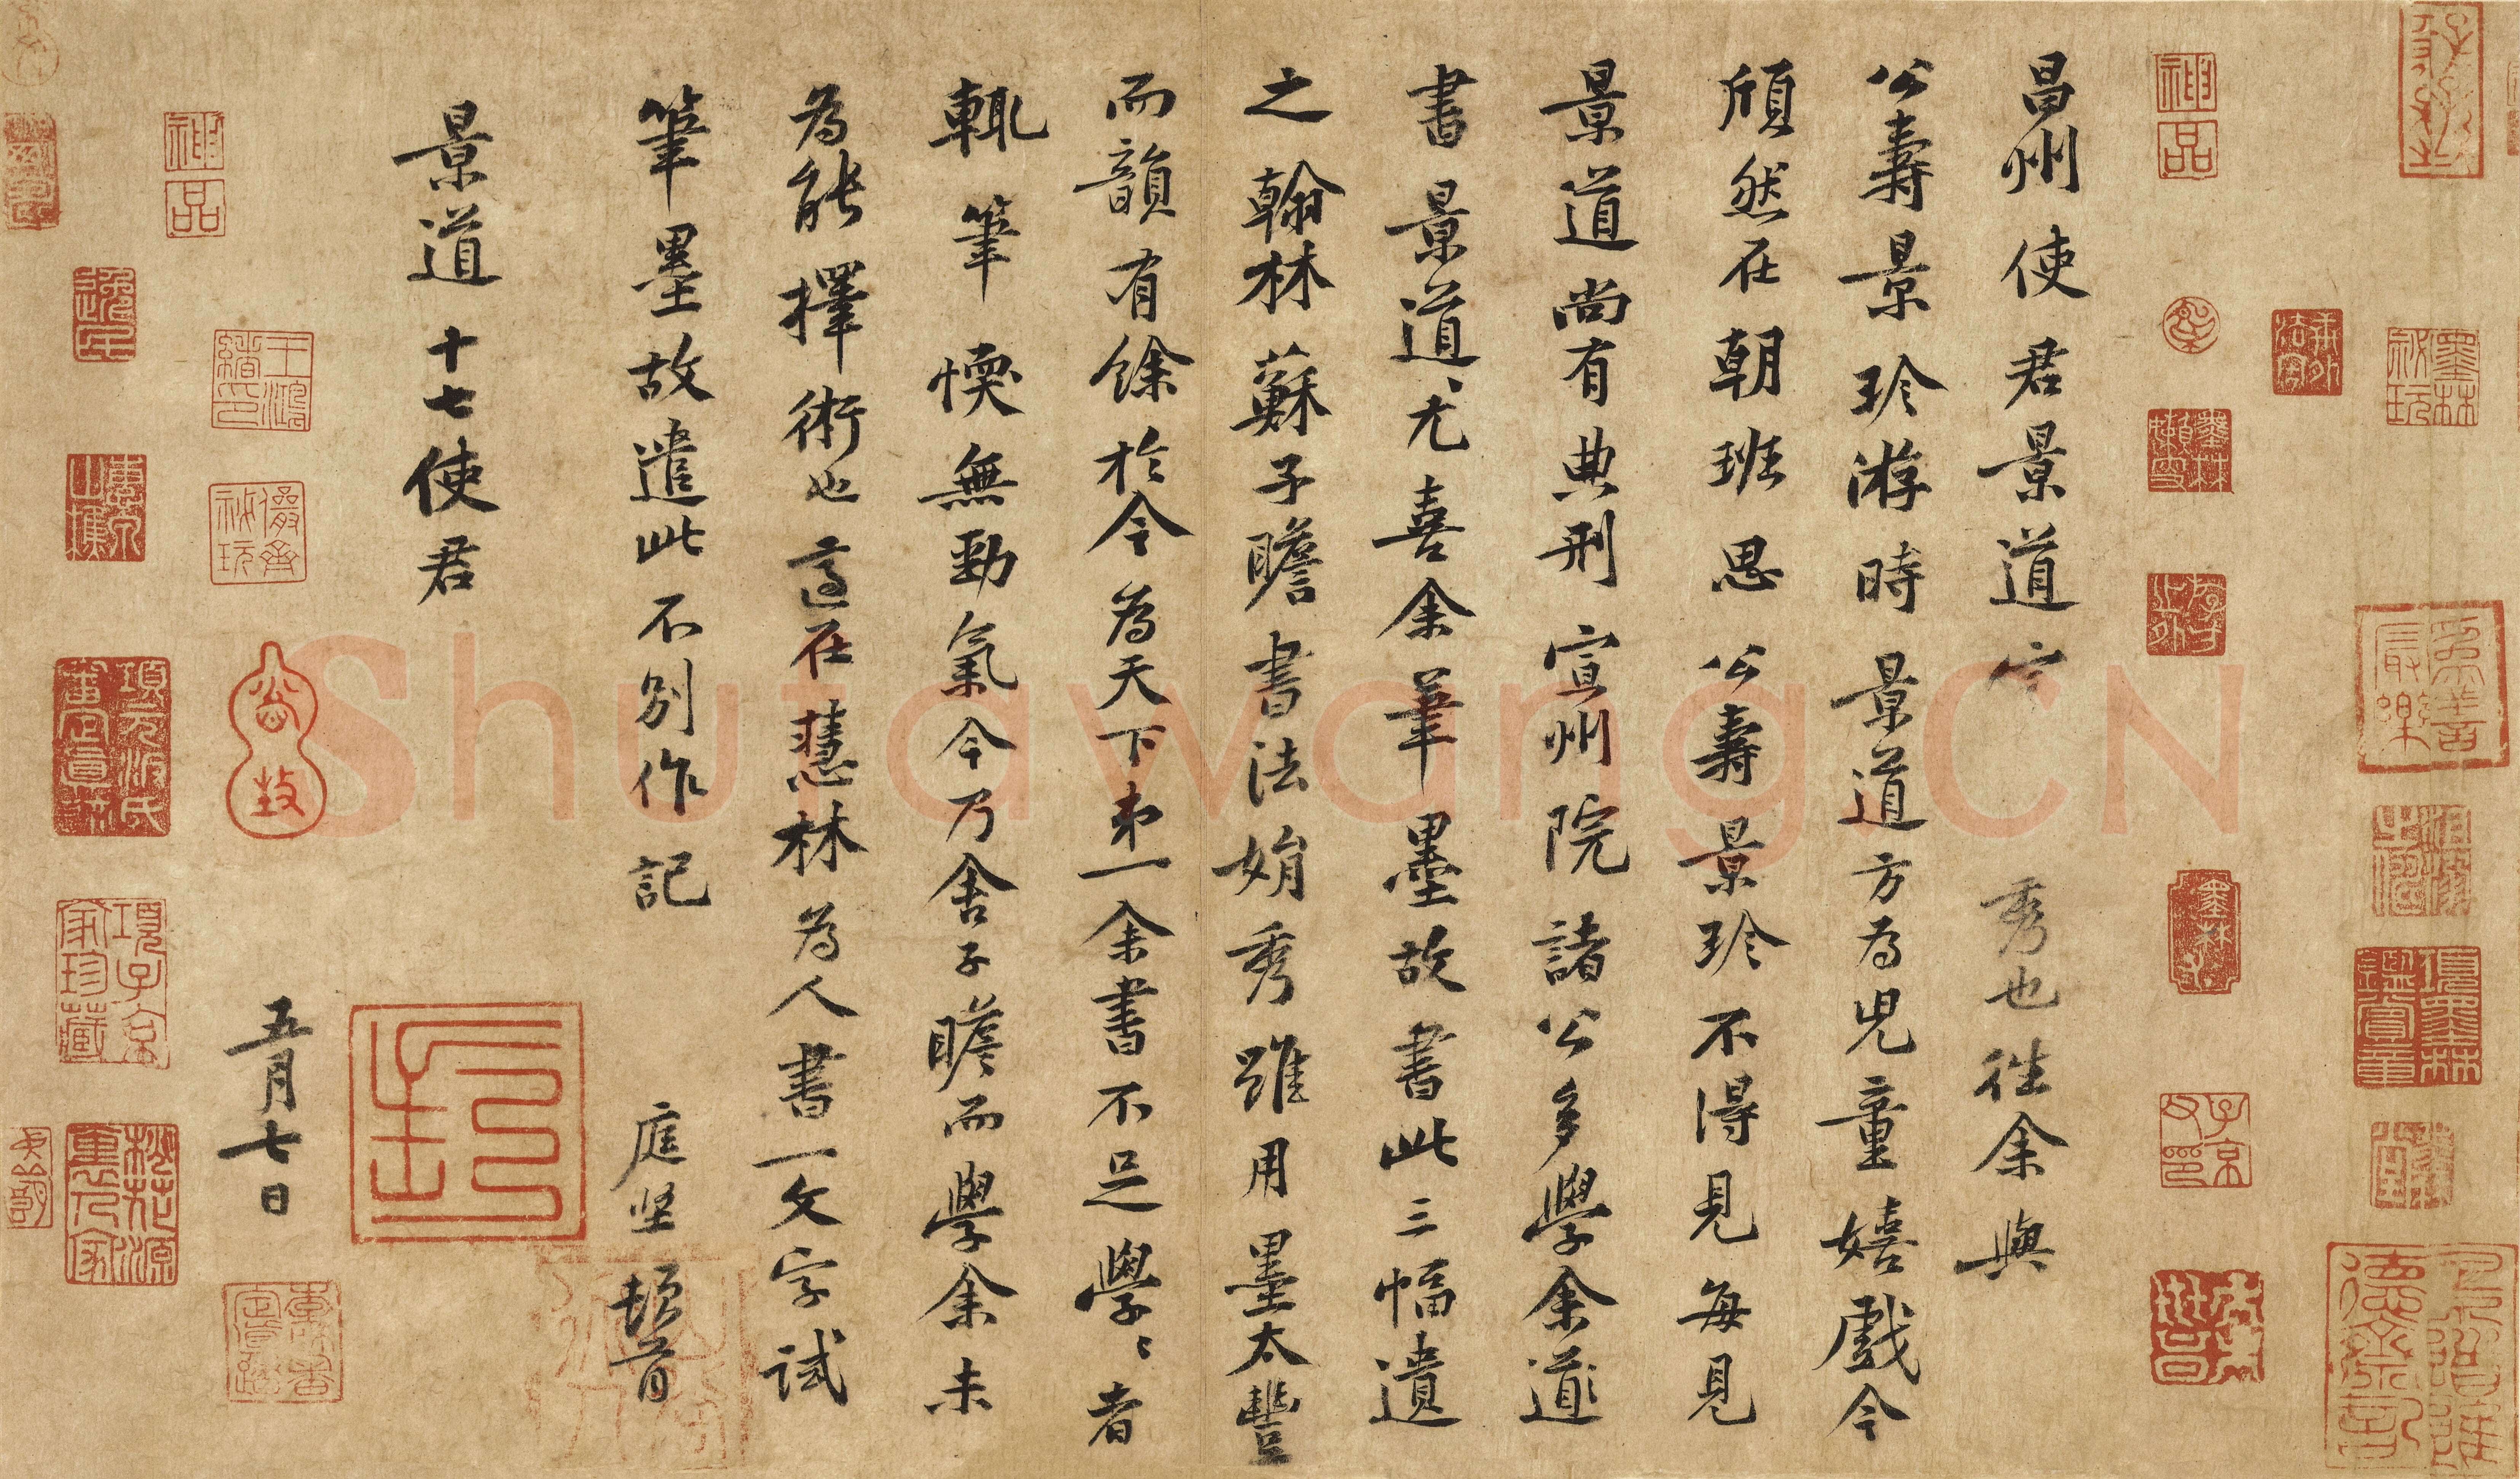 昌州使君景道宗秀也往余與
公壽景珍游時景道方為兒童嬉戲今
頎然在朝班思公壽景珍不得見每見
景道尚有典刑宣州院諸公多學余
書景道〻尤喜余筆墨故書此三幅遺
之翰林蘇子瞻書法娟秀雖用墨太豐
而韻有餘於今為天下第一余書不足學學〻者
輒筆愞無勁氣今乃舍子瞻而學余未
為能擇術也適在慧林為人書一文字試
筆墨故遣此不別作記
庭堅頓首
景道十七使君
五月七日
神品
神品
墨林祕玩
子京父印
項子京家珍藏
項墨林鑑賞章
項元汴氏審定真跡
Shufawang.CN